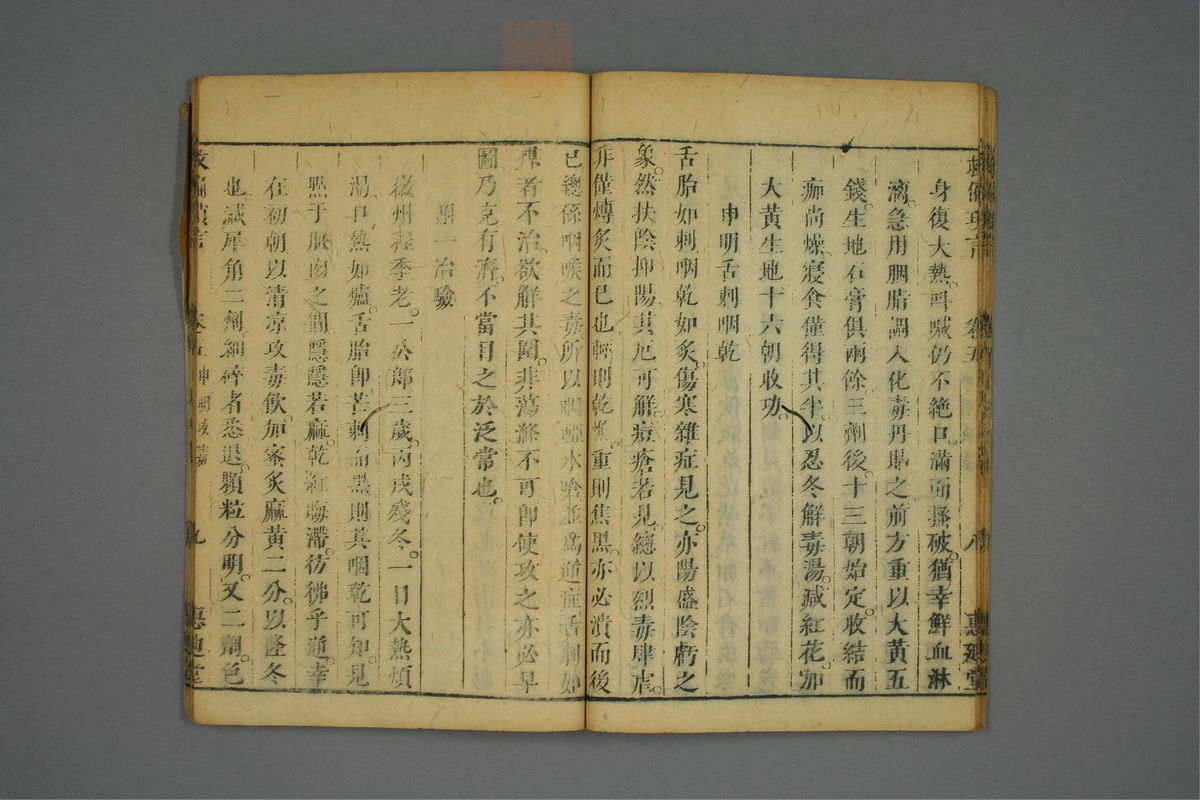 身復大熱呌喊仍不絶口滿面搔破猶幸鮮血淋
漓急用胭脂調入化毒丹貼之前方重以大黃五
錢生地石膏俱兩餘三劑後十三朝始定收結而
痂尚燥寢食僅得其半以忍冬解毒湯減紅花加
大黃生地十六朝收功
申明舌刺咽乾
舌胎如刺咽乾如炙傷寒雜症見之亦陽盛陰虧之
象然扶陰抑陽其厄可解痘瘡若見總以烈毒肆虐
非僅熯炙而已也輕則乾燋重則焦黑亦必潰而後
已總係咽喉之毒所以咽啞水嗆並爲逆症舌刺如
者不治欲解其圍非蕩滌不可卽使攻之亦必早
圖乃克有濟不當目之於泛常也
附一治驗
徽州程季老一公郎三歲丙戌殘冬一日大熱煩
渴口熱如爐舌胎卽芒刺而黑則其咽乾可知見
點于肌肉之間隱隱若麻乾紅晦滯彷彿乎逆幸
在初朝以清凉攻毒飲加蜜炙麻黃二分以隆冬
也減犀角二劑細碎者悉退顆粒分明又二劑色
卷五
申明
九
惠迪堂
卷五
八
惠迪堂